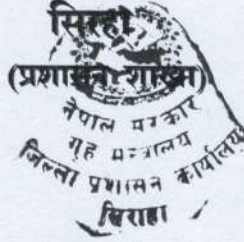 सिरहा
(प्रशासन शाखा)
नेपाल सरकार
गृह मन्त्रालय
जिल्ला प्रशासन कार्यालय
सिराहा